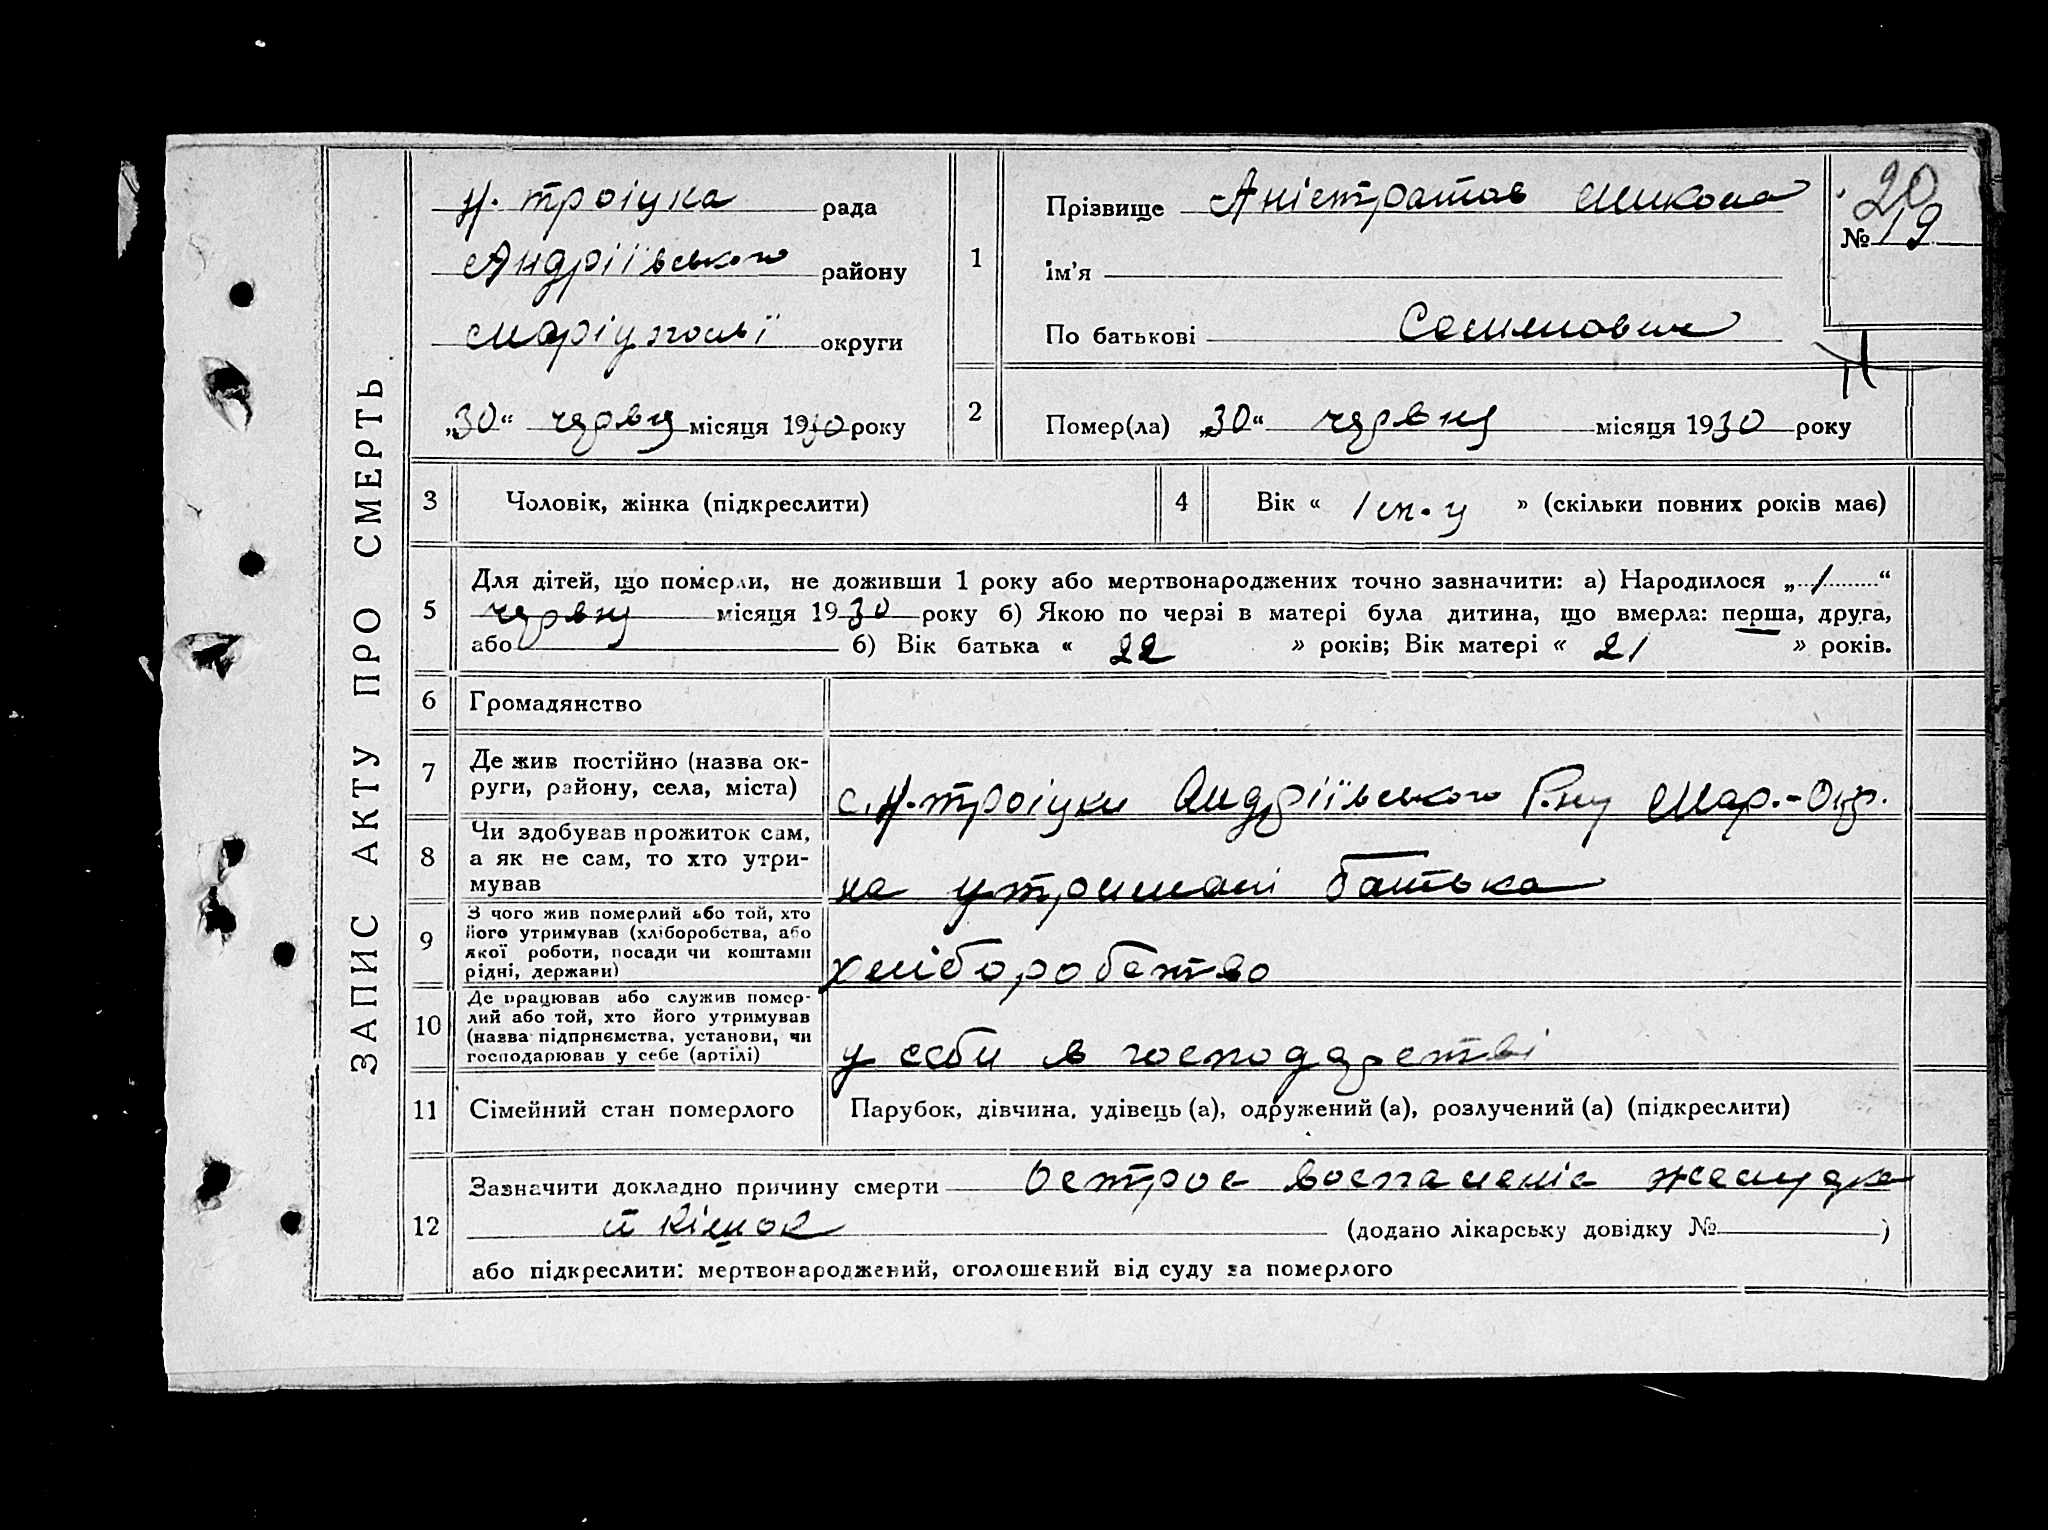 ЗАПИС АКТУ ПРО СМЕРТЬ
Н. троіцка рада
Андріївського району
Маріупольї округи
„30“ червня місяця 1930 року
1
Прізвище Аністратов Микола
ім’я
По батькові
20
№ 19
2
Помер(ла) „30“ червня місяця 1930 року
3 Чоловік, жінка (підкреслити)
4 Вік « 1 м-ц » (скільки повних років має)
5
Для дітей, що померли, не доживши 1 року або мертвонароджених точно зазначити: а) Народилося „ 1 “
червня місяця 1930 року б) Якою по черзі в матері була дитина, що вмерла: перша, друга,
або б) Вік батька « 22 » років; Вік матері « 21 » років.
6 Громадянство
7
Де жив постійно (назва ок-
руги, району, села, міста)
с. Н. троіцки Андріївського Р-ну Мар.-Окр.
8
Чи здобував прожиток сам,
а як не сам, то хто утри-
мував
на утримані батька
9
З чого жив померлий або той, хто
його утримував (хліборобства, або
якої роботи, посади чи коштами
рідні, держави)
хліборобство
10
Де працював або служив помер-
лий або той, хто його утримував
(назва підприємства, установи, чи
господарював у себе (артілі)
у себи в господарстві
11 Сімейний стан померлого
Парубок, дівчина, удівець (а), одружений (а), розлучений (а) (підкреслити)
12
Зазначити докладно причину смерти Острое воспаленіє желудка
й кішок (додано лікарську довідку № )
або підкреслити: мертвонароджений, оголошений від суду за померлого